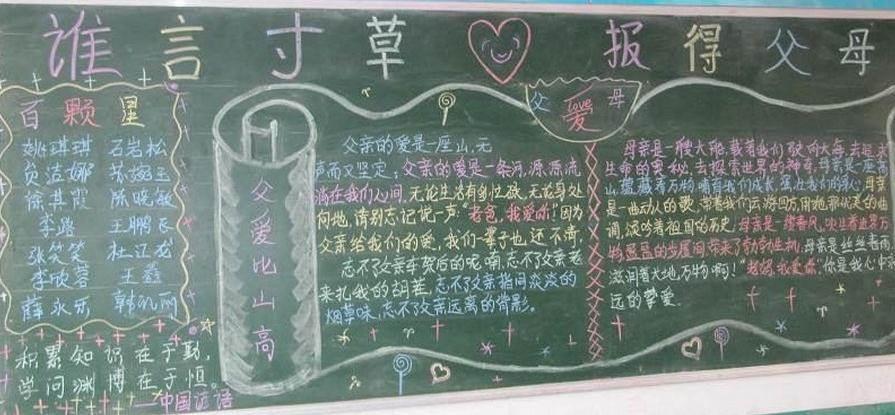 谁言寸草 报得父母
百颗星
姚琪琪 石岩松
陈晓敏
李璐 王鹏辰
张笑笑 杜江龙
李欣蓉 王鑫
薛永乐
积累知识在于勤,
学问渊博在于恒。
——中国谚语
父爱比山高
父 爱 Love 母
父亲的爱是一座山,无
声而又坚定;父亲的爱是一条河,源源流
淌在我们心间,无论生活有多忙碌,无论身处
何地,请别忘记说一声:“老爸,我爱你!因为
父亲给我们的爱,我们一辈子也还不清,
忘不了父亲车架后的呢喃,忘不了父亲老
来扎我的胡茬,忘不了父亲指间淡淡的
烟草味,忘不了父亲远离的背影。
母亲是一艘大船,载着我们驶向大海,去追
生命的奥秘,去探索世界的神奇,母亲是一座
山,蕴藏着万物,哺育我们成长,强壮我们的心,母亲
是一曲动人的歌,带着我们云游四方,用她那优美的曲
调,谈吟着祖国的历史,母亲是一缕春风,吹
物,带来了勃勃生机,母亲是丝丝春雨
滋润着大地,万物啊!“老妈,我爱你”你是我心中
远的挚爱.